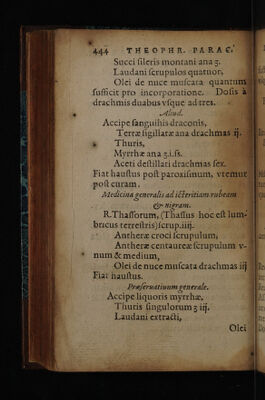 444 THEOPHR. PARAC.
Succi sileris montani ana ʒ.
Laudani scrupulos quatuor,
Olei de nuce muscata quantum
sufficit pro incorporatione. Dosis à
drachmis duabus vsque ad tres.
Aliud.
Accipe sanguinis draconis,
Terræ sigillatæ ana drachmas ij.
Thuris,
Myrrhæ ana ʒ.i.ſs.
Aceti destillati drachmas sex.
Fiat haustus post paroxismum, vtemur
post curam.
Medicina generalis ad icteritiam rubeam
& nigram.
R. Thassorum, (Thassus hoc est lum-
bricus terrestris) scrup. iiij.
Antheræ croci scrupulum,
Antheræ centaureæ scrupulum v-
num & medium,
Olei de nuce muscata drachmas iij
Fiat haustus.
Præseruatiuum generale.
Accipe liquoris myrrhæ,
Thuris singulorum ʒ iij.
Laudani extracti,
Olei